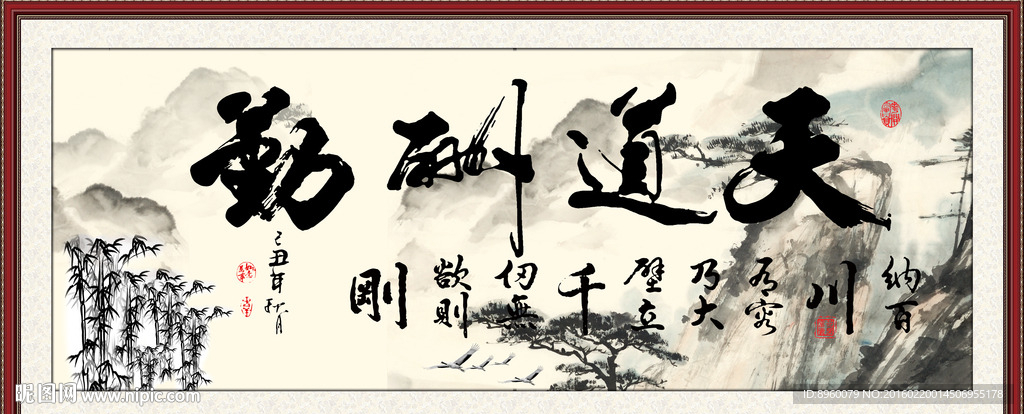 天道酬勤
納百
川
有容
乃大
壁立
千
仞無
欲則
剛
己丑年秋月
昵图网 www.nipic.com
ID:8960079 NO:20160220014506955178